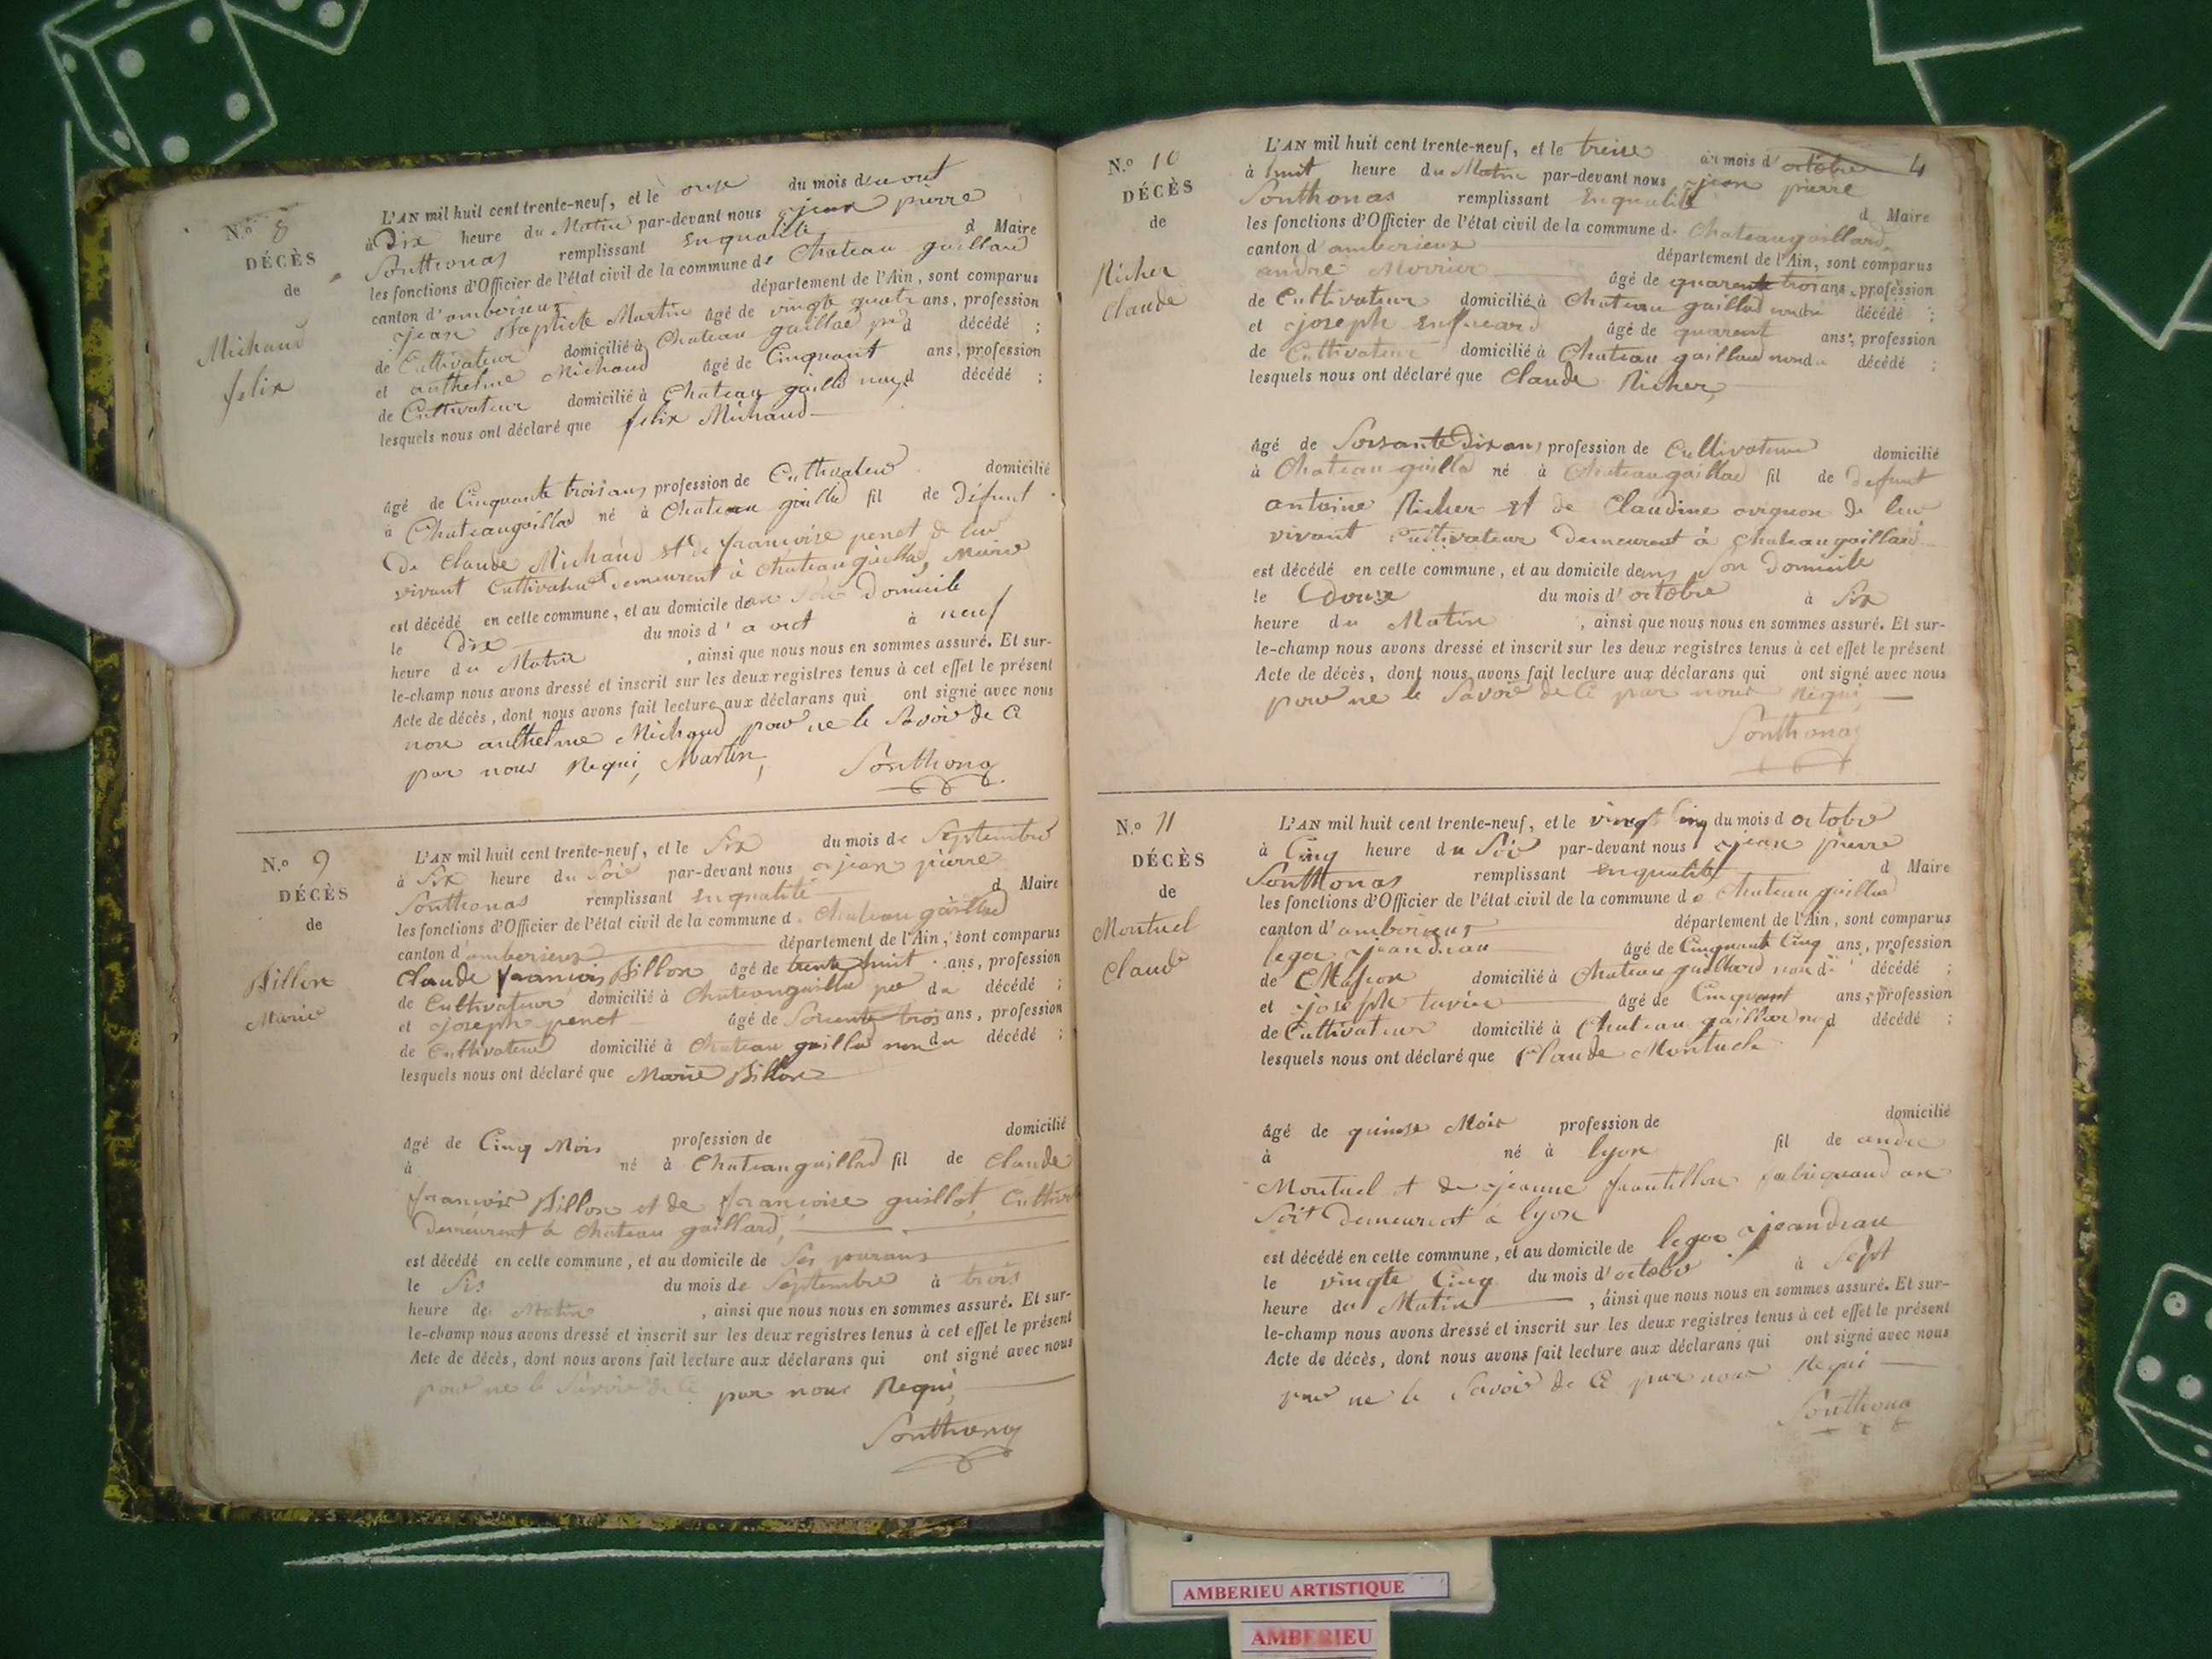 N.o 8
DÉCÈS
de
Michaud
felix
L'AN mil huit cent trente-neuf, et le onze du mois d'aout
à Dix heure du Matin par-devant nous jean pierre
Sonthonas remplissant En qualité d Maire
les fonctions d'Officier de l'état civil de la commune de Chateau gaillard
canton d'amberieux département de l'Ain, sont comparus
jean Baptiste Martin âgé de vingt quatr ans, profession
de Cultivateur domicilié à Chateau gaillad d décédé ;
et anthelme Michaud âgé de Cinquant ans, profession
de Cultivateur domicilié à Chateau gailld d décédé ;
lesquels nous ont déclaré que felix Michaud
âgé de Cinquante trois ans profession de Cultivateur domicilié
à Chateaugaillad né à Chateau gaillad fil de Défunt
De Claude Michaud et de françoise penet de leur
vivant Cultivateur demeurent à Chateau gaillad,
est décédé en cette commune, et au domicile dans Son Domicile
le Dix du mois d'aout à neuf
heure du Matin , ainsi que nous nous en sommes assuré. Et sur-
le-champ nous avons dressé et inscrit sur les deux registres tenus à cet effet le présent
Acte de décès, dont nous avons fait lecture aux déclarans qui ont signé avec nous
non anthelme Michaud pour ne le Savoir de Ce
par nous Requi, Martin, Sonthonas
N.o 9
DÉCÈS
de
Billon
Marie
L'AN mil huit cent trente-neuf, et le Six du mois de Septembre
à Six heure du Soir par-devant nous jean pierre
Sonthonas remplissant En qualité d Maire
les fonctions d'Officier de l'état civil de la commune d Chateau gaillad
canton d'amberieux département de l'Ain, sont comparus
Claude françois Billon âgé de trente huit ans, profession
de Cultivateur domicilié à Chateaugaillad per du décédé ;
et joseph penet âgé de Soixente trois ans, profession
de Cultivateur domicilié à Chateau gaillad non du décédé ;
lesquels nous ont déclaré que Marie Billon
âgé de Cinq Mois profession de domicilié
à né à Chateaugaillad fil de Claude
françois Billon et de françoise guillot, Cultiv
Demeurent à Chateau gaillard,
est décédé en cette commune, et au domicile de Ses parans
le Six du mois de Septembre à trois
heure de Matin , ainsi que nous nous en sommes assuré. Et sur-
le-champ nous avons dressé et inscrit sur les deux registres tenus à cet effet le présent
Acte de décès, dont nous avons fait lecture aux déclarans qui ont signé avec nous
pour ne le Savoir de Ce par nous Requi,
Sonthonas
4
N.o 10
DÉCÈS
de
Richer
Claude
L'AN mil huit cent trente-neuf, et le treise du mois d'octobre
à huit heure du Matin par-devant nous jean pierre
Sonthonas remplissant En qualité d Maire
les fonctions d'Officier de l'état civil de la commune d Chateaugaillard
canton d'amberieux département de l'Ain, sont comparus
andré Morrier âgé de quarente trois ans, profession
de Cultivateur domicilié à Chateau gaillad décédé ;
et joseph âgé de quarent ans, profession
de Cultivateur domicilié à Chateau gaillad non du décédé ;
lesquels nous ont déclaré que Claude Richer,
âgé de Soisante Dix ans profession de Cultivateur domicilié
à Chateau gailla né à Chateaugaillad fil de defunt
antoine Richer et de Claudine de leur
vivant Cultivateur Demeurent à Chateaugaillard
est décédé en cette commune, et au domicile dans Son Domicile
le Douse du mois d'octobre à Six
heure du Matin , ainsi que nous nous en sommes assuré. Et sur-
le-champ nous avons dressé et inscrit sur les deux registres tenus à cet effet le présent
Acte de décès, dont nous avons fait lecture aux déclarans qui ont signé avec nous
pour ne le Savoir de Ce par nous Requi,
Sonthonas
N.o 11
DÉCÈS
de
Montuel
Claude
L'AN mil huit cent trente-neuf, et le vingt Cinq du mois d octobre
à Cinq heure du Soir par-devant nous jean pierre
Sonthonas remplissant En qualité d Maire
les fonctions d'Officier de l'état civil de la commune de Chateau gaillad
canton d'amberieux département de l'Ain, sont comparus
leger jeandrau âgé de Cinquant Cinq ans, profession
de Mason domicilié à Chateau gaillard non d décédé ;
et joseph âgé de Cinquant ans, profession
de Cultivateur domicilié à Chateau gaillad d décédé ;
lesquels nous ont déclaré que Claude Montuel
âgé de quinse Mois profession de domicilié
à né à lyon fil de andré
Montuel et de jeanne fabriquand an
Soit demeurent à lyon
est décédé en cette commune, et au domicile de leger jeandrau
le vingte Cinq du mois d'octobr à Sept
heure du Matin , ainsi que nous nous en sommes assuré. Et sur-
le-champ nous avons dressé et inscrit sur les deux registres tenus à cet effet le présent
Acte de décès, dont nous avons fait lecture aux déclarans qui ont signé avec nous
pour ne le Savoir de Ce par nous Requi
Sonthonas
AMBERIEU ARTISTIQUE
AMBERIEU